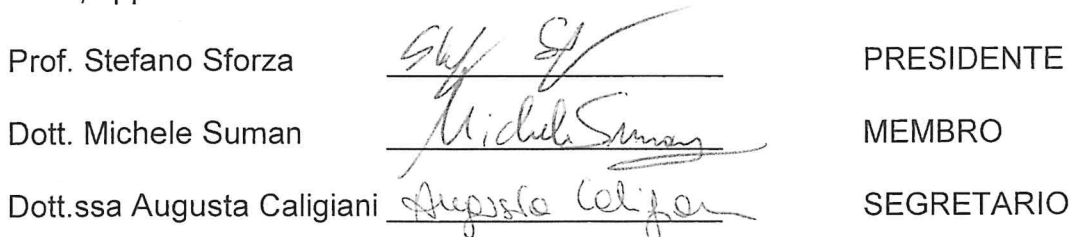 Prof. Stefano Sforza PRESIDENTE
Dott. Michele Suman Michele Suman MEMBRO
Dott.ssa Augusta Caligiani Augusta SEGRETARIO